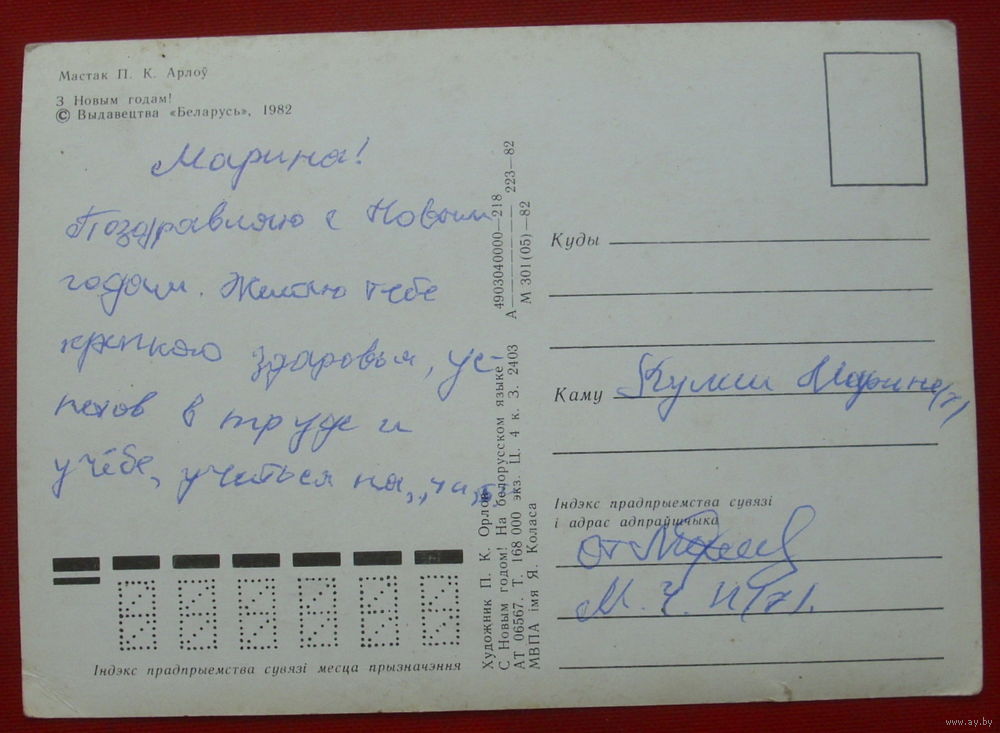 Мастак П. К. Арлоў
З Новым годам!
© Выдавецтва «Беларусь», 1982
Марина!
Поздравляю с Новым
годом. Желаю тебе
крепкого здоровья, ус-
пехов в труде и
учёбе, учиться на „4 и
Індэкс прадпрыемства сувязі месца прызначэння
Художник П. К. Орлов
С Новым годом! На белорусском языке
4903040000—218
АТ 06567. Т. 168 000 экз. Ц. 4 к. З. 2403
А———223—82
МВПА імя Я. Коласа
М 301(05)—82
Куды
Каму Марине
Індэкс прадпрыемства сувязі
і адрас адпраўшчыка
от
www.ay.by